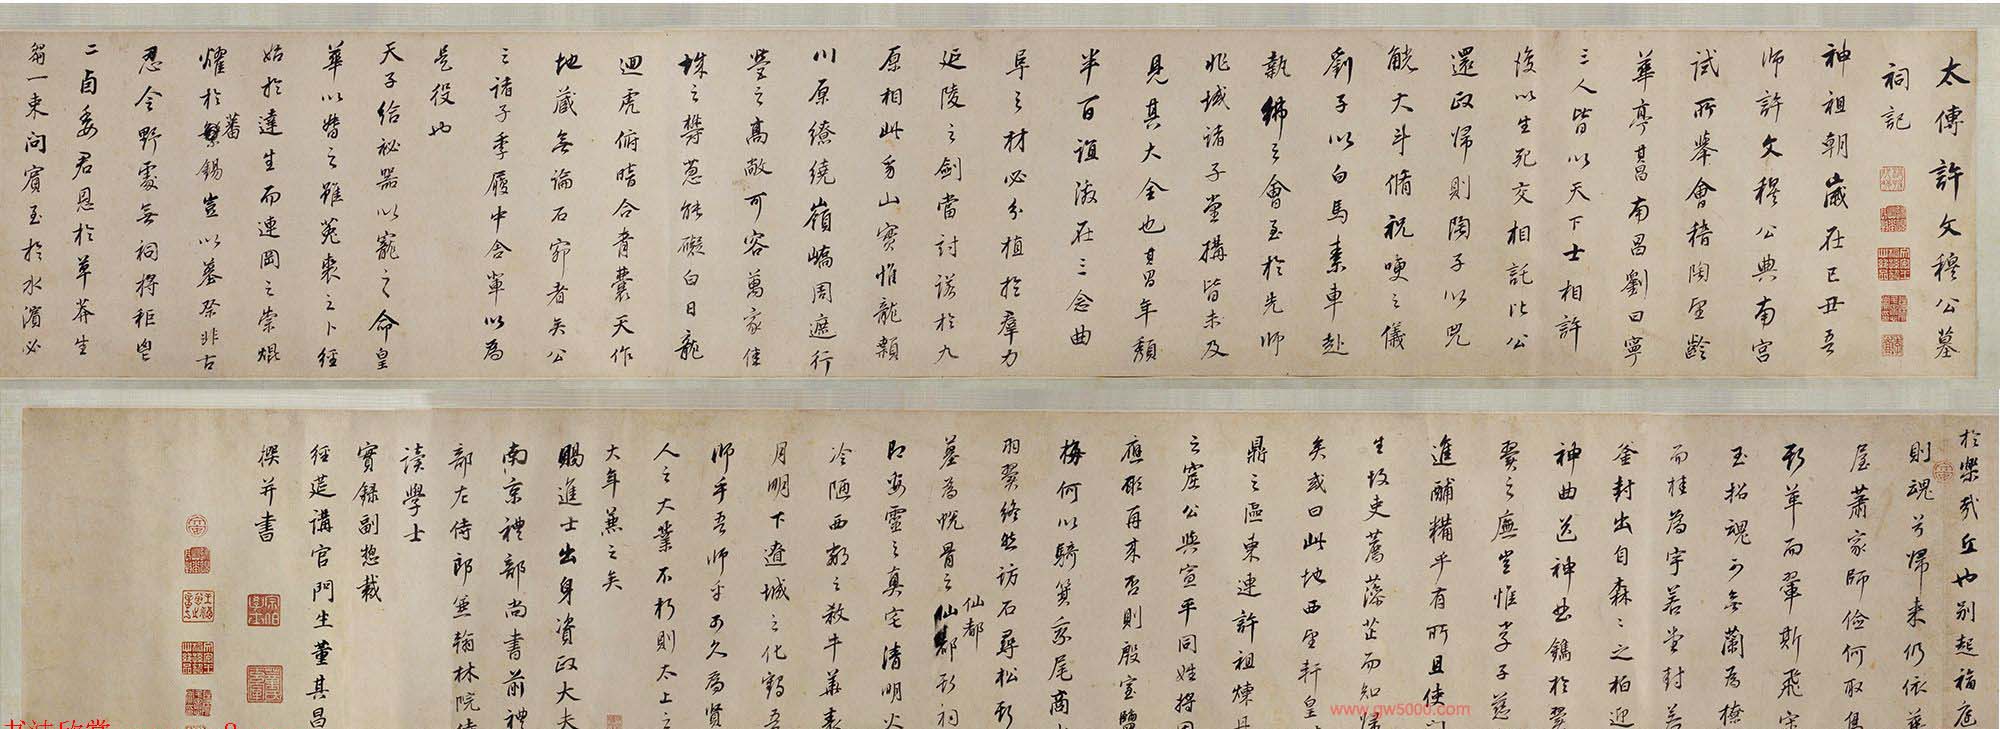 太傳許文穆公墓
祠記
神祖朝歲在己丑吾
師許文穆公典南宮
試所舉會稽陶望齡
華亭其昌南昌劉曰寧
三人皆以天下士相許
後以生死交相託比公
還政歸則陶子以兕
觥大斗脩祝哽之儀
劉子以白馬素車赴
執紼之會至於先師
兆域諸子堂構皆未及
見其大全也其昌年頹
半百誼激在三念曲
阜之材必分植於羣力
延陵之劍當討諾於九
原相此系山實惟龍顙
川原繚繞嶺嶠周遮行
營之高敞可容萬家佳
城之鬱蔥能礙白日龍
迴虎俯暗合青囊天作
地藏無論石窌者矣公
之諸子季履中舍輩以為
是役也
天子給祕器以寵之命皇
華以營之雖菟裘之卜經
始於達生而連岡之崇焜
燿於蕃錫豈以墓祭非古
蕃
忍令野處無祠將秬鬯
二卣委君恩於草莽生
芻一束問賓至於水濱必
於樂哉丘也別起福庭
則魂兮歸來仍依華
屋蕭家師儉何取
斯革而翬斯飛宋
玉招魂可無蘭為橑
而桂為宇若堂封若
釜封出自森森之柏迎
神曲送神曲鐫於
翼之廡豈惟孝子慈
進酺糒乎有所且使
生故吏薦藻芷而知歸
矣或曰此地西望軒皇
鼎之區東連許祖煉丹
之窟公與宣平同姓將
應酧再來否則殷室鹽
梅何以騎箕系尾商
羽翼終然訪石尋松
墓為蛻骨之仙都
仙都
即安靈之真宅清明火
冷陋西鄰之殺牛華表
月明下遼城之化鶴吾
師乎吾師乎可久為賢
人之大業不朽則太上之
大年兼之矣
賜進士出身資政大夫
南京禮部尚書前禮
部左侍郎兼翰林院侍
讀學士
實錄副總裁
經筵講官門生董其昌
撰并書
www.gw5000.com
書法欣賞